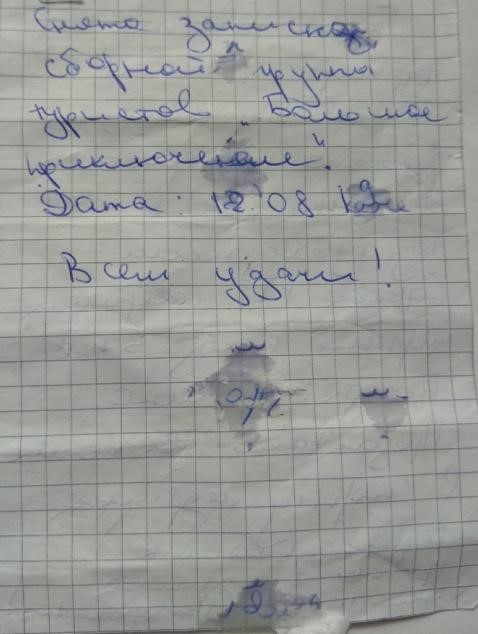 Снята записка
сборной группа
туристов „Большое
приключение".
Дата: 12.08
Всем удачи!